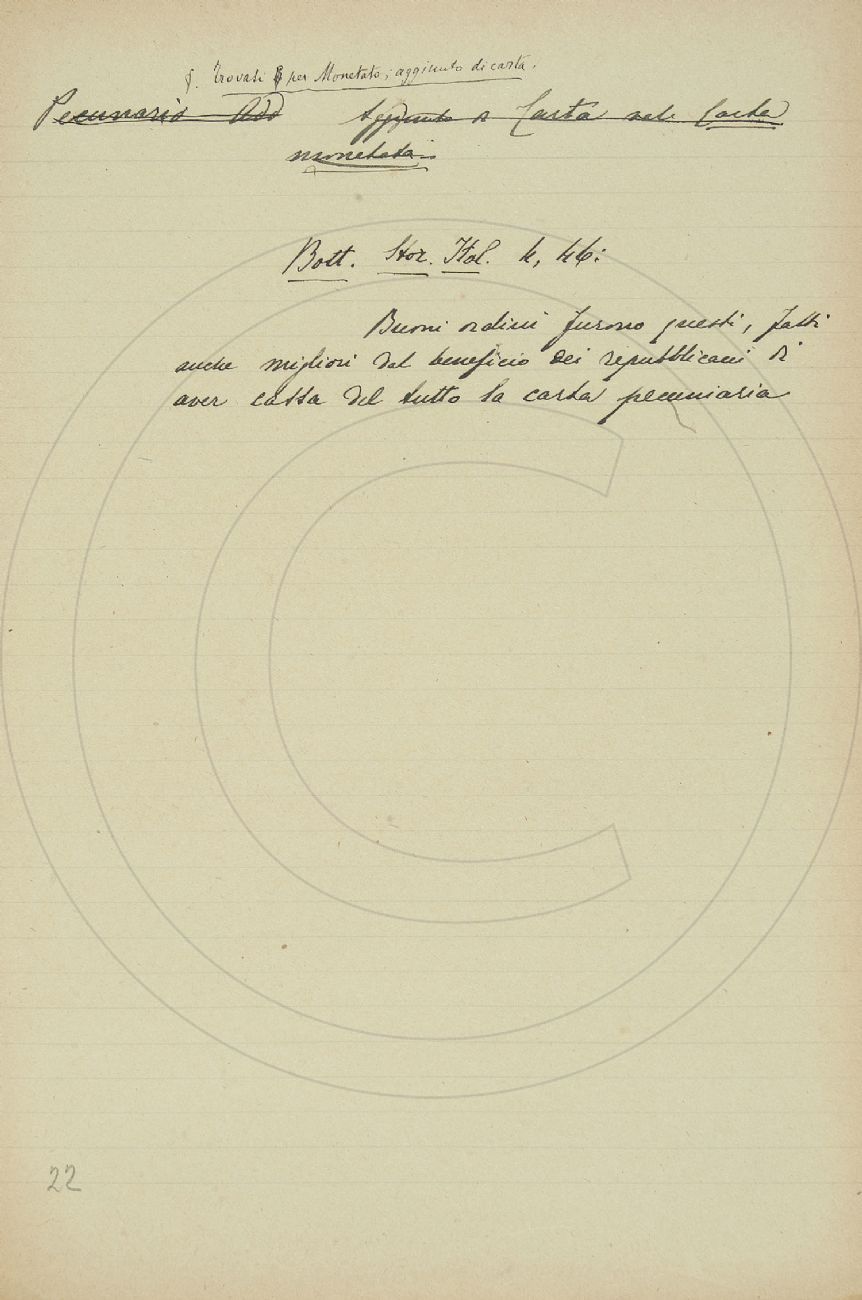 §. Trovasi per Monetato; aggiunto di carta.
Pecunario Add Aggiunto di Carta vale Carta
monetata.
Bott. Stor. Ital. 4, 46:
Buoni ordini furono questi, fatti
anche migliori dal beneficio dei repubblicani di
aver cassa del tutto la carta pecuniaria
22